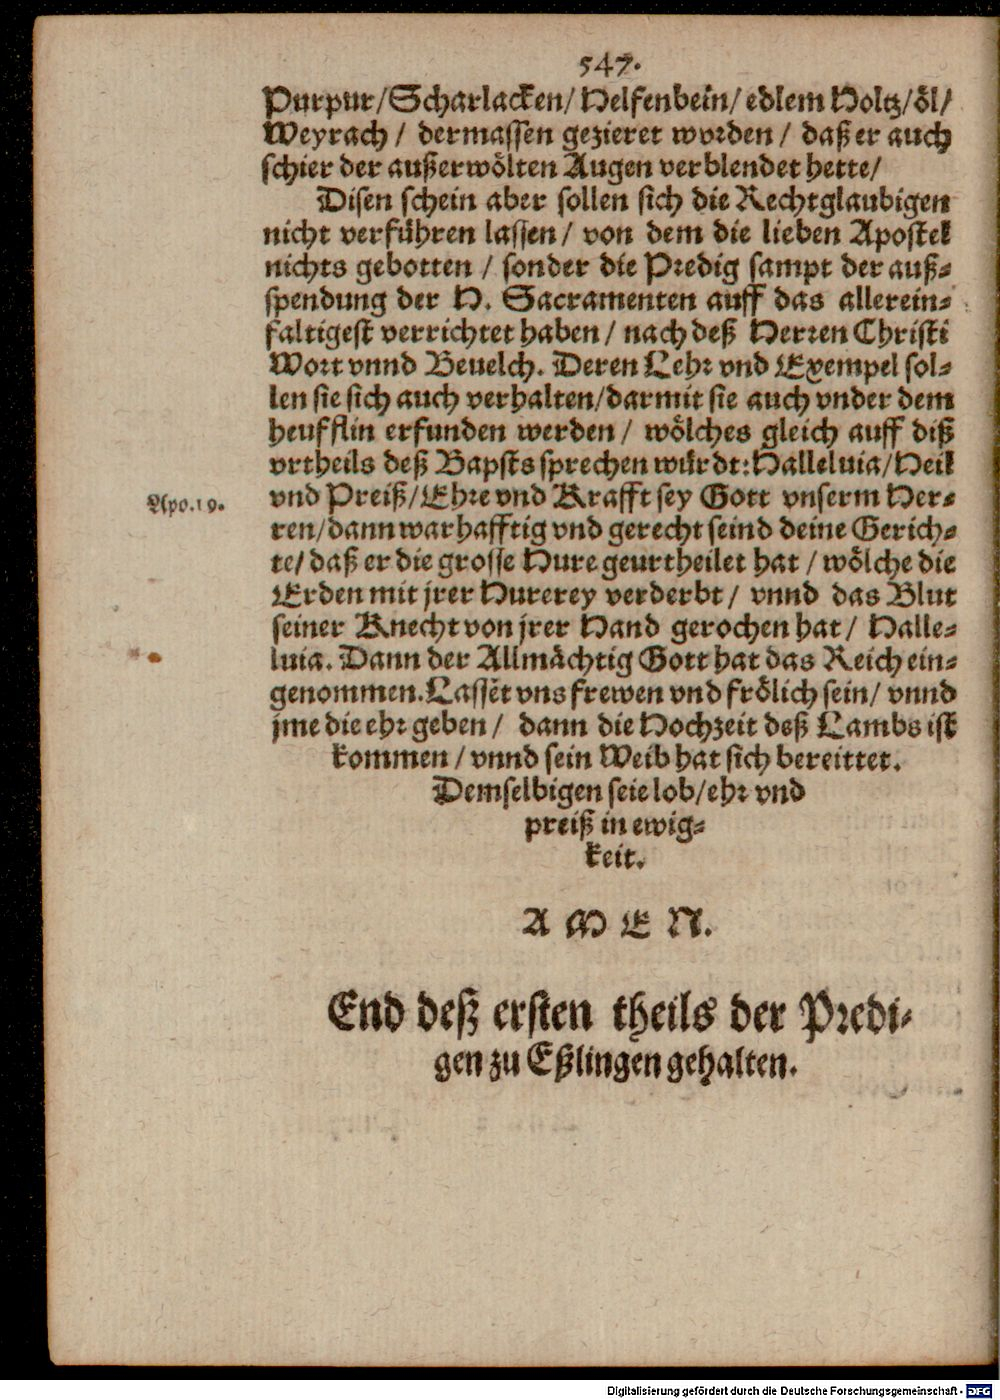 547.
Purpur/Scharlacken/Helfenbein/edlem Holtz/öl/
Weyrach / dermassen gezieret worden / daß er auch
schier der außerwölten Augen verblendet hette/
Disen schein aber sollen sich die Rechtglaubigen
nicht verführen lassen / von dem die lieben Apostel
nichts gebotten / sonder die Predig sampt der auß-
spendung der H. Sacramenten auff das allerein-
faltigest verrichtet haben / nach deß Herren Christi
Wort vnnd Beuelch. Deren Lehr vnd Exempel sol-
len sie sich auch verhalten/darmit sie auch vnder dem
heufflin erfunden werden / wölches gleich auff diß
vrtheils deß Bapsts sprechen würdt: Halleluia/Heil
Apo.19.
vnd Preiß/Ehre vnd Krafft sey Gott vnserm Her-
ren/dann warhafftig vnd gerecht seind deine Gerich-
te/ daß er die grosse Hure geurtheilet hat / wölche die
Erden mit jrer Hurerey verderbt / vnnd das Blut
seiner Knecht von jrer Hand gerochen hat / Halle-
luia. Dann der Allmächtig Gott hat das Reich ein-
genommen. Lassēt vns frewen vnd frölich sein / vnnd
jme die ehr geben / dann die Hochzeit deß Lambs ist
kommen / vnnd sein Weib hat sich bereittet.
Demselbigen seie lob/ehr vnd
preiß in ewig-
keit.
A M E N.
End deß ersten theils der Predi-
gen zu Eßlingen gehalten.
Digitalisierung gefördert durch die Deutsche Forschungsgemeinschaft - DFG